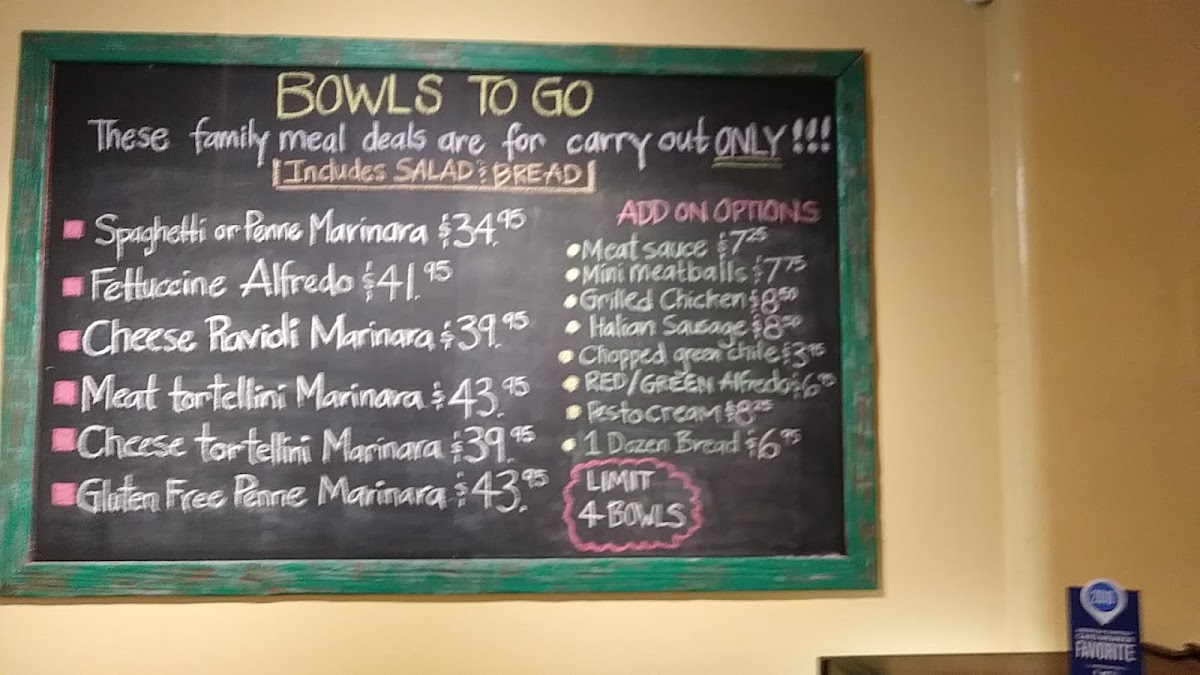 BOWLS TO GO
These family meal deals are for carry out ONLY!!!
Includes SALAD & BREAD
Spaghetti or Penne Marinara $34.95
Fettuccine Alfredo $41.95
Cheese Ravioli Marinara $39.95
Meat tortellini Marinara $43.95
Cheese tortellini Marinara $39.95
Gluten Free Penne Marinara $43.95
ADD ON OPTIONS
Meat sauce $7.25
Mini meatballs $7.75
Grilled Chicken $8.50
Italian Sausage $8.50
Chopped green chile $3.95
RED/GREEN Alfredo
Pesto Cream $8.25
1 Dozen Bread $6.95
LIMIT
4 BOWLS
FAVORITE